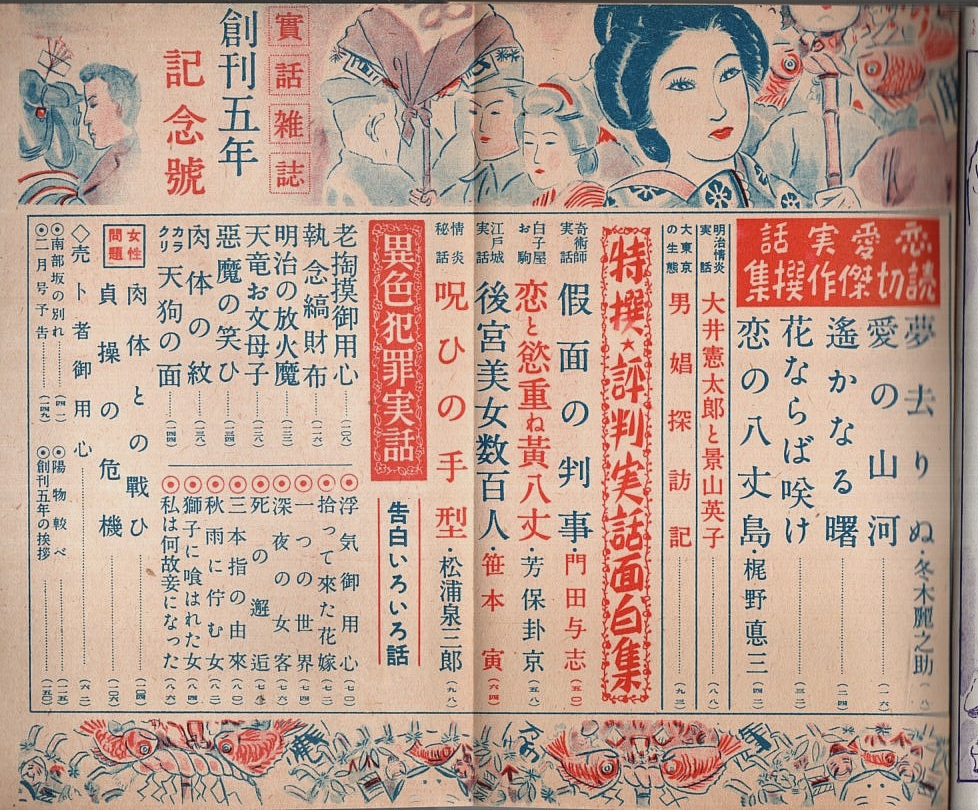 實話雑誌
創刊五年
記念號
恋愛実話
読切傑作撰集
夢去りぬ・冬木麗之助
愛の山河……(一六)
遙かなる曙……(二四)
花ならば咲け……(三二)
恋の八丈島・梶野悳三(四二)
明治情炎実話 大井憲太郎と景山英子……(八八)
大東京の生態 男娼探訪記……(九三)
特撰★評判実話面白集
奇術師実話 假面の判事・門田与志(五〇)
白子屋お駒 恋と慾重ね黃八丈・芳保卦京(五八)
江戸城実話 後宮美女数百人・笹本寅(六四)
情炎秘話 呪ひの手型・松浦泉三郎(九八)
異色犯罪実話
老掏摸御用心……(一〇八)
執念縞財布……(一一六)
明治の放火魔……(一二二)
天竜お文母子……(一二八)
惡魔の笑ひ……(一三四)
肉体の紋……(一三八)
カラクリ天狗の面……(一四四)
告白いろいろ話
◉浮気御用心(七〇)
◉拾って來た花嫁(七二)
◉一つの世界(七四)
◉深夜の女客(七六)
◉死の邂逅(七八)
◉三本指の由來(八〇)
◉秋雨に佇む女(八二)
◉獅子に喰はれた女(八四)
私は何故妾になった(八六)
女性問題
肉体との戰ひ……(二四)
貞操の危機……(一〇六)
◇売卜者御用心……(六二)
◉南部坂の別れ……(四一)
◉陽物較べ……(一二五)
◉二月号予告……(一四九)
◉創刊五年の挨拶……(一五〇)